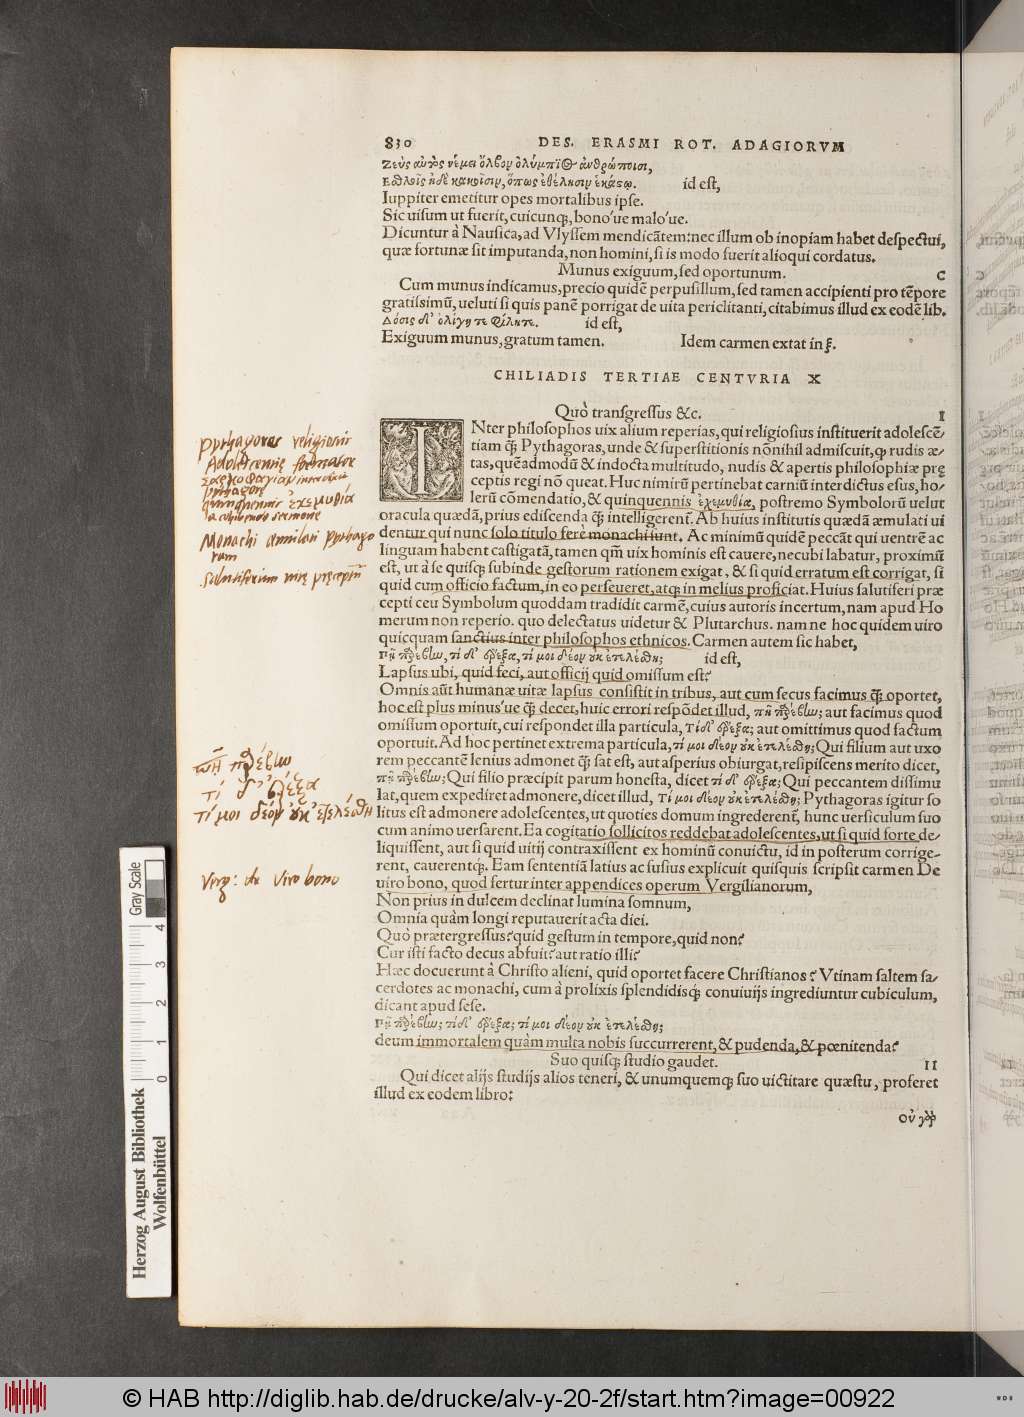 830 DES. ERASMI ROT. ADAGIORVM
Ζεὺς αὐτὸς νέμει ὄλβον ὀλύμπιος ἀνθρώποισι,
Ἐσθλοῖς ἠδὲ κακοῖσιν, ὅπως ἐθέλησιν ἑκάστῳ. id est,
Iuppiter emetitur opes mortalibus ipse.
Sic uisum ut fuerit, cuicunq;, bono'ue malo'ue.
Dicuntur à Nausica, ad Vlyssem mendicātem: nec illum ob inopiam habet despectui,
quæ fortunæ sit imputanda, non homini, si is modo fuerit alioqui cordatus.
Munus exiguum, sed oportunum. C
Cum munus indicamus, precio quidē perpusillum, sed tamen accipienti pro tēpore
gratissimū, ueluti si quis panē porrigat de uita periclitanti, citabimus illud ex eodē lib.
Δόσις δ' ὀλίγη τε φίλη τε. id est,
Exiguum munus, gratum tamen. Idem carmen extat in ξ.
CHILIADIS TERTIAE CENTVRIA X
Quò transgressus &c. I
INter philosophos uix alium reperias, qui religiosius instituerit adolescē/
tiam q̃ Pythagoras, unde & superstitionis nōnihil admiscuit, q̃ rudis æ/
tas, quēadmodū & indocta multitudo, nudis & apertis philosophiæ pręͅ
ceptis regi nō queat. Huc nimirū pertinebat carniū interdictus esus, ho/
lerū cōmendatio, & quinquennis ἐχεμυθία, postremo Symbolorū uelut
oracula quædā, prius ediscenda q̃ intelligerent̃. Ab huius institutis quædā æmulati ui
dentur qui nunc solo titulo ferè monachi sunt. Ac minimū quidē peccāt qui uentrē ac
linguam habent castigatā, tamen qm̃ uix hominis est cauere, necubi labatur, proximū
est, ut à se quisq; subinde gestorum rationem exigat, & si quid erratum est corrigat, si
quid cum officio factum, in eo perseueret, atq; in melius proficiat. Huius salutiferi præ
cepti ceu Symbolum quoddam tradidit carmē, cuius autoris incertum, nam apud Ho
merum non reperio. quo delectatus uidetur & Plutarchus. nam ne hoc quidem uiro
quicquam sanctius inter philosophos ethnicos. Carmen autem sic habet,
Πῆ παρέβην, τί δ' ἔρεξα, τί μοι δέον οὐκ ἐτελέσθη; id est,
Lapsus ubi, quid feci, aut officij quid omissum est?
Omnis aūt humanæ uitæ lapsus consistit in tribus, aut cum secus facimus q̃ oportet,
hoc est plus minus'ue q̃ decet, huic errori respōdet illud, πῆ παρέβην; aut facimus quod
omissum oportuit, cui respondet illa particula, τί δ' ἔρεξα; aut omittimus quod factum
oportuit. Ad hoc pertinet extrema particula, τί μοι δέον οὐκ ἐτελέσθη; Qui filium aut uxo
rem peccantē lenius admonet q̃ sat est, aut asperius obiurgat, resipiscens merito dicet,
πῆ παρέβην; Qui filio præcipit parum honesta, dicet τί δ' ἔρεξα; Qui peccantem dissimu
lat, quem expediret admonere, dicet illud, τί μοι δέον οὐκ ἐτελέσθη; Pythagoras igitur so
litus est admonere adolescentes, ut quoties domum ingrederent̃, hunc uersiculum suo
cum animo uersarent. Ea cogitatio sollicitos reddebat adolescentes, ut si quid forte de/
liquissent, aut si quid uitij contraxissent ex hominū conuictu, id in posterum corrige/
rent, cauerentq;. Eam sententiā latius ac fusius explicuit quisquis scripsit carmen De
uiro bono, quod fertur inter appendices operum Vergilianorum,
Non prius in dulcem declinat lumina somnum,
Omnia quàm longi reputauerit acta diei.
Quò prætergressus? quid gestum in tempore, quid non?
Cur isti facto decus abfuit? aut ratio illi?
Hæc docuerunt à Christo alieni, quid oportet facere Christianos? Vtinam saltem sa/
cerdotes ac monachi, cum à prolixis splendidisq; conuiuijs ingrediuntur cubiculum,
dicant apud sese.
Πῆ παρέβην; τί δ' ἔρεξα; τί μοι δέον οὐκ ἐτελέσθη;
deum immortalem quàm multa nobis succurrerent, & pudenda, & pœnitenda?
Suo quisq; studio gaudet. II
Qui dicet alijs studijs alios teneri, & unumquemq; suo uictitare quæstu, proferet
illud ex eodem libro:
οὐ γὰρ
Pythagoras religionis
Adolescentię formator
Σαρκοφαγίαν interdixit
Pythagoras
quinquennis ἐχεμυθία
Monachi aemulari Pythago
ram
Salutiferum
πῆ παρέβην
τί δ' ἔρεξα
τί μοι δέον οὐκ ἐτελέσθη
Verg: de viro bono
Gray Scale
0 1 2 3 4
Herzog August Bibliothek
Wolfenbüttel
© HAB http://diglib.hab.de/drucke/alv-y-20-2f/start.htm?image=00922